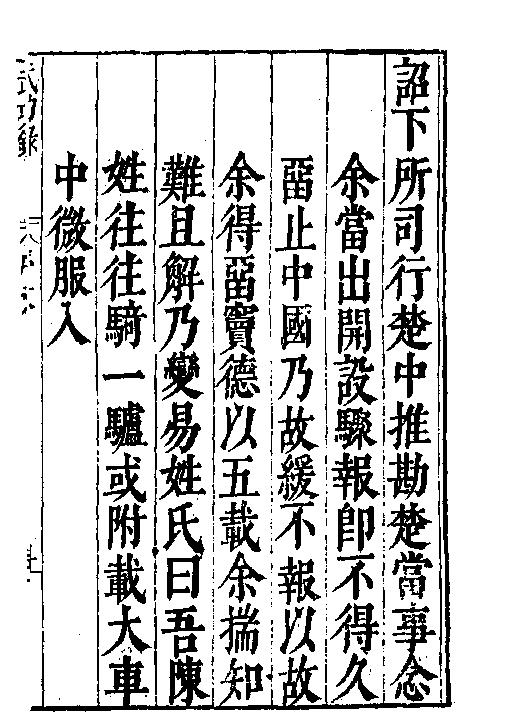 詔下所司行楚中推勘楚當事念
余當出開設驟報卽不得久
畱止中國乃故緩不報以故
余得畱竇德以五載余揣知
難且解乃變易姓氏曰吾陳
姓往往騎一驢或附載大車
中微服入
武功錄